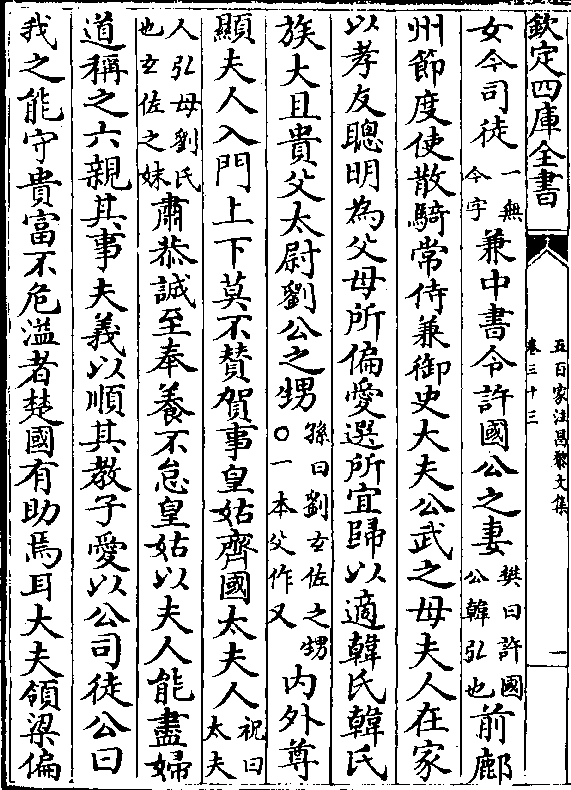 欽定四庫全書
五百家注昌黎文集
卷三十三
一
女今司徒一無今字兼中書令許國公之妻樊曰許國公韓弘也前鄜
州節度使散騎常侍兼御史大夫公武之母夫人在家
以孝友聰明為父母所偏愛選所宜歸以適韓氏韓氏
族大且貴父太尉劉公之甥孫曰劉玄佐之甥○一本父作又内外尊
顯夫人入門上下莫不賛賀事皇姑齊國太夫人祝曰太夫
人弘母劉氏也玄佐之妹肅恭誠至奉養不怠皇姑以夫人能盡婦
道稱之六親其事夫義以順其教子愛以公司徒公曰
我之能守貴富不危溢者楚國有助焉耳大夫領梁偏